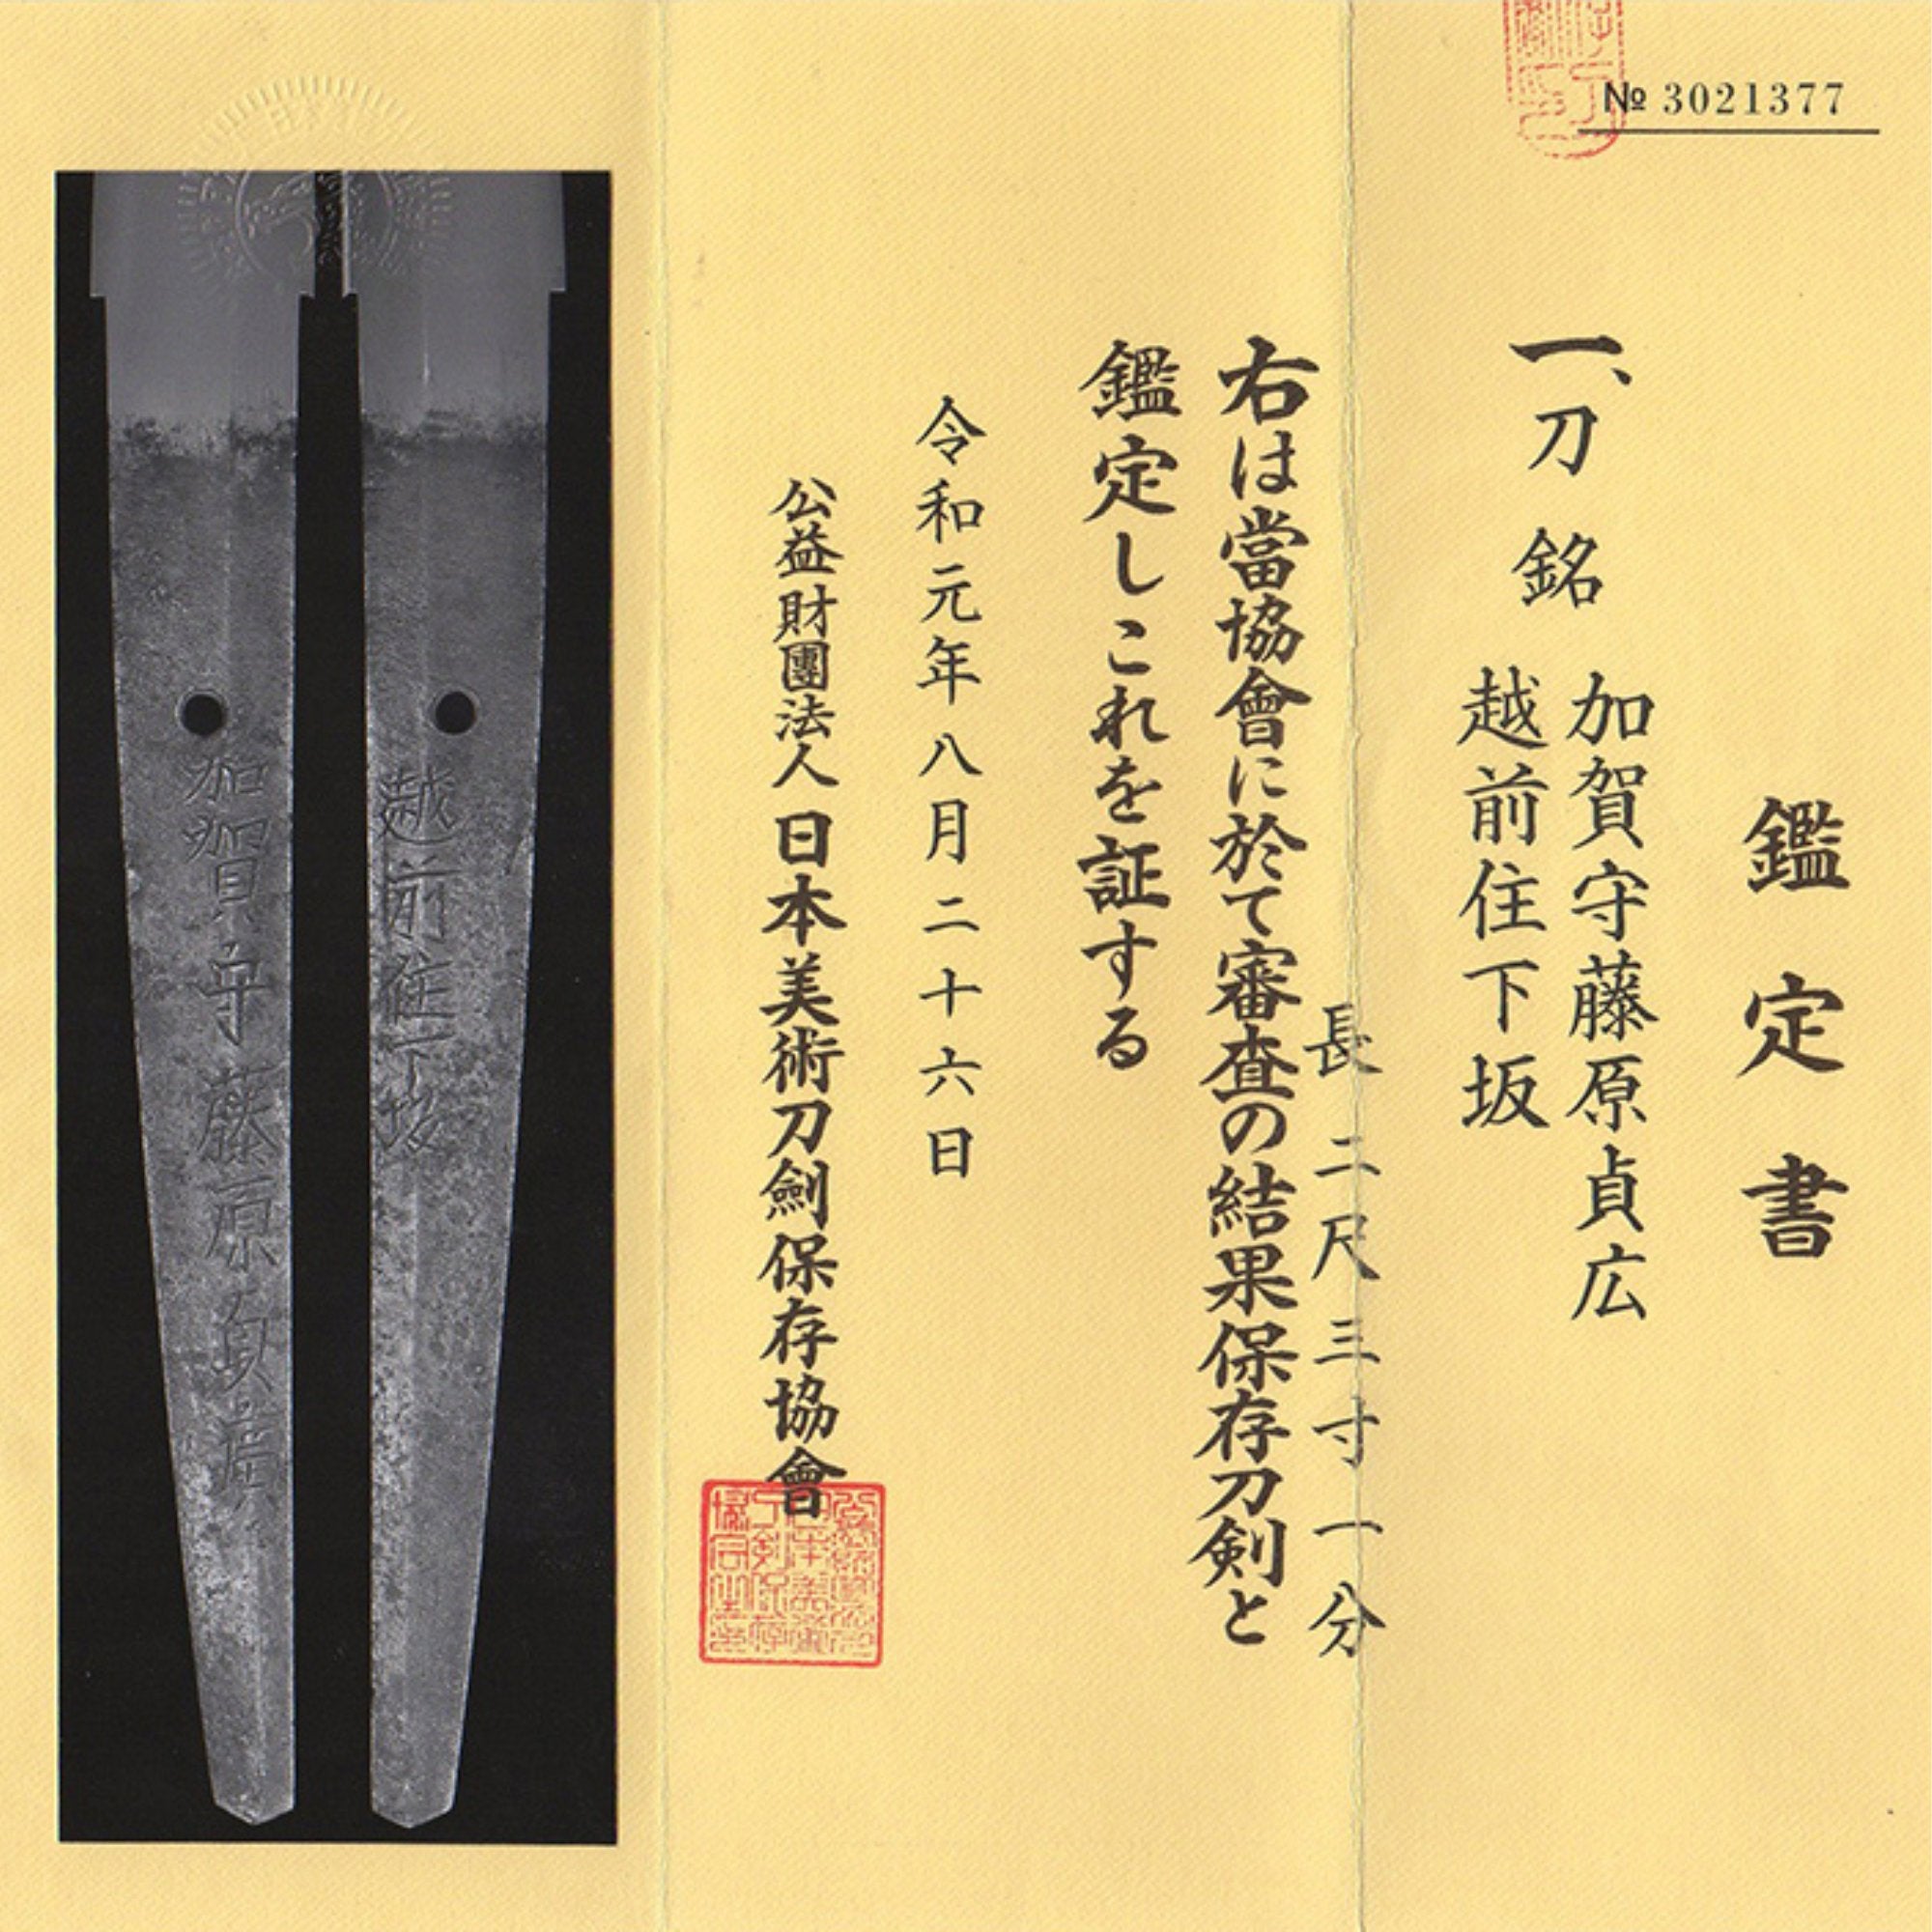 № 3021377
鑑定書
一、刀 銘 加賀守藤原貞広
越前住下坂
長 二尺三寸一分
右は當協會に於て審査の結果保存刀剣と
鑑定しこれを証する
令和元年八月二十六日
公益財團法人日本美術刀劍保存協會
越前住下坂
加賀守藤原貞廣